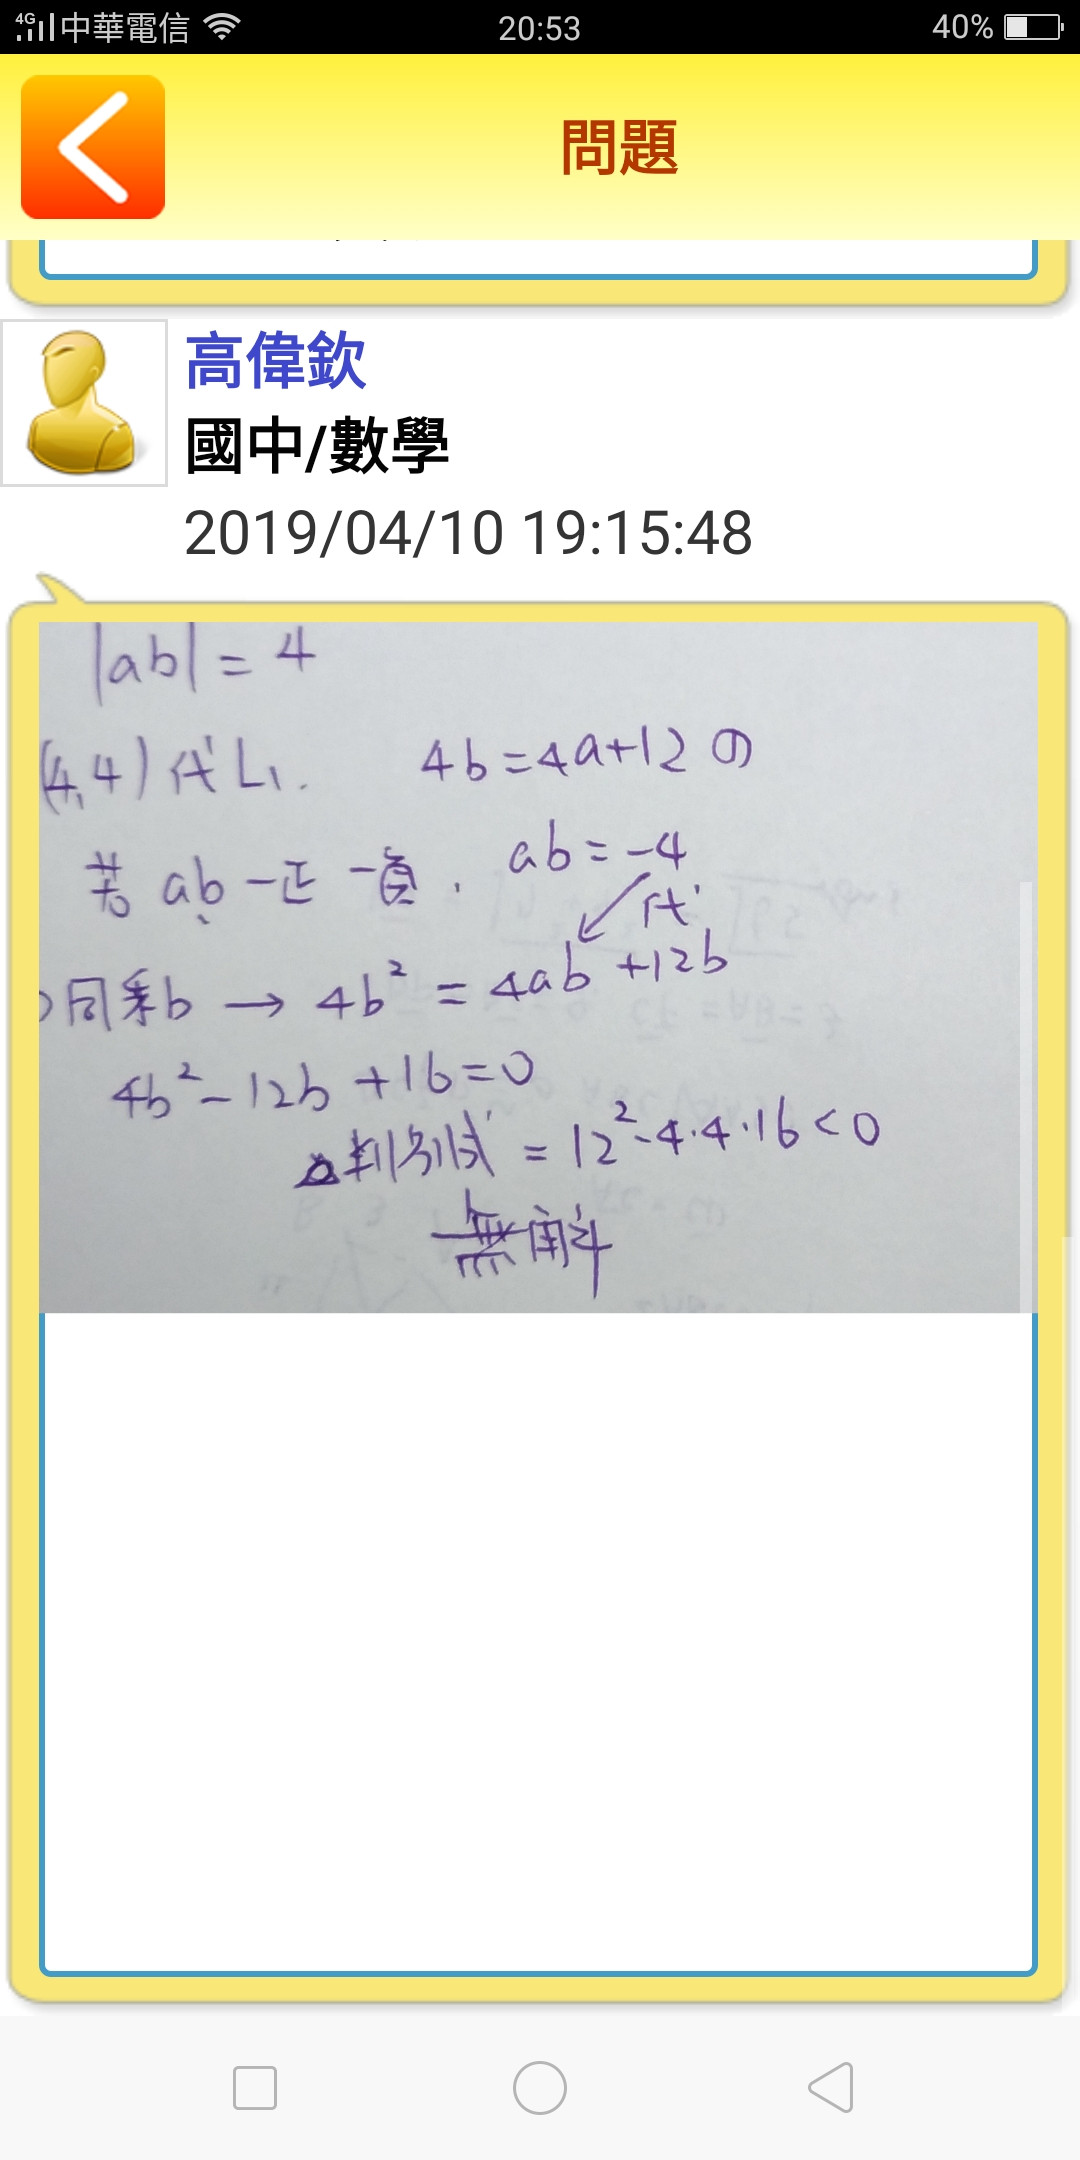 4G 中華電信 20:53 40%
問題
高偉欽
國中/數學
2019/04/10 19:15:48
|ab| = 4
(4,4) 代 L₁. 4b=4a+12 ①
若 ab 一正一負, ab = -4
代
同乘b → 4b² = 4ab +12b
4b² - 12b + 16 = 0
△判別式 = 12² - 4·4·16 < 0
無解